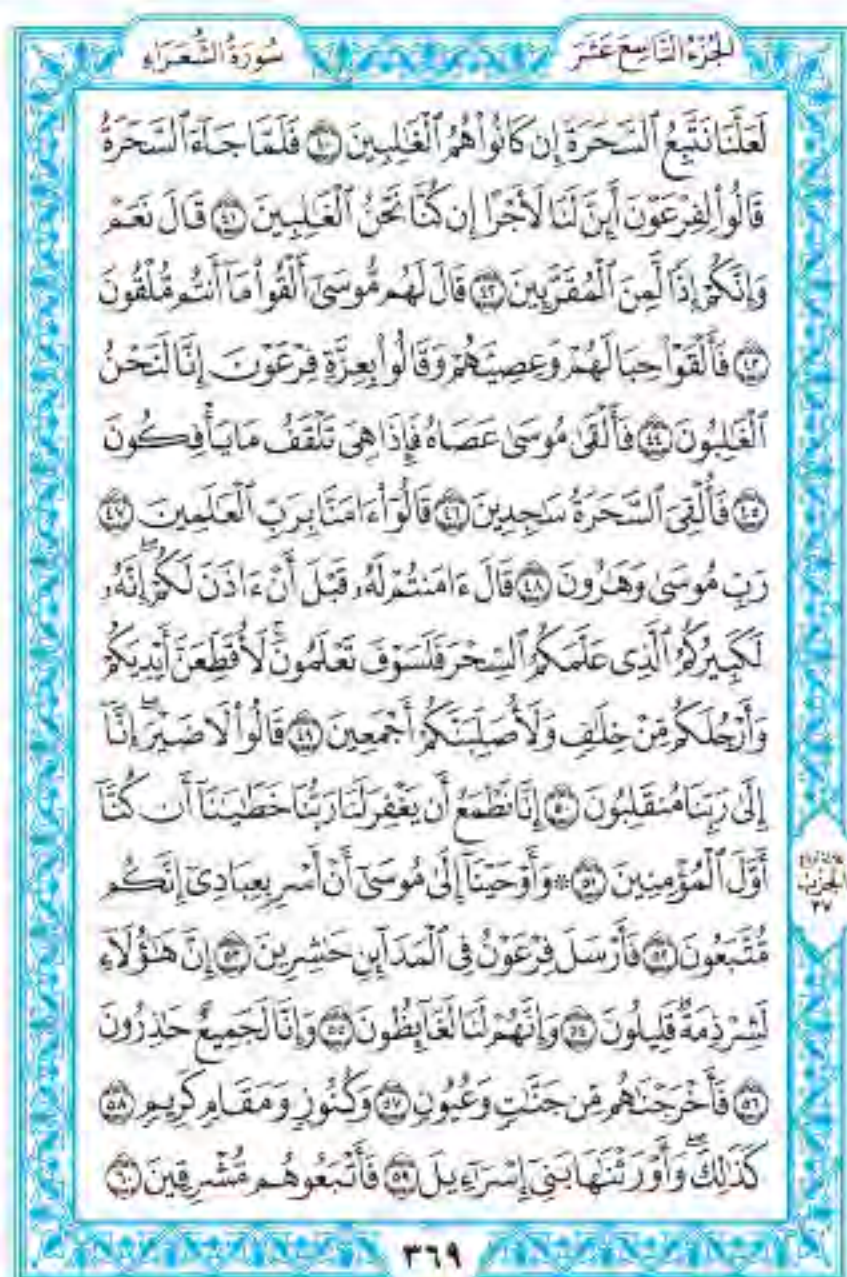 الجُزْءُ التَّاسِعَ عَشَرَ
سُورَةُ الشُّعَرَاءِ
لَعَلَّنَا نَتَّبِعُ ٱلسَّحَرَةَ إِن كَانُوا۟ هُمُ ٱلْغَٰلِبِينَ ٤٠ فَلَمَّا جَآءَ ٱلسَّحَرَةُ
قَالُوا۟ لِفِرْعَوْنَ أَئِنَّ لَنَا لَأَجْرًا إِن كُنَّا نَحْنُ ٱلْغَٰلِبِينَ ٤١ قَالَ نَعَمْ
وَإِنَّكُمْ إِذًا لَّمِنَ ٱلْمُقَرَّبِينَ ٤٢ قَالَ لَهُم مُّوسَىٰٓ أَلْقُوا۟ مَآ أَنتُم مُّلْقُونَ
٤٣ فَأَلْقَوْا۟ حِبَالَهُمْ وَعِصِيَّهُمْ وَقَالُوا۟ بِعِزَّةِ فِرْعَوْنَ إِنَّا لَنَحْنُ
ٱلْغَٰلِبُونَ ٤٤ فَأَلْقَىٰ مُوسَىٰ عَصَاهُ فَإِذَا هِىَ تَلْقَفُ مَا يَأْفِكُونَ
٤٥ فَأُلْقِىَ ٱلسَّحَرَةُ سَٰجِدِينَ ٤٦ قَالُوٓا۟ ءَامَنَّا بِرَبِّ ٱلْعَٰلَمِينَ ٤٧
رَبِّ مُوسَىٰ وَهَٰرُونَ ٤٨ قَالَ ءَامَنتُمْ لَهُۥ قَبْلَ أَنْ ءَاذَنَ لَكُمْ ۖ إِنَّهُۥ
لَكَبِيرُكُمُ ٱلَّذِى عَلَّمَكُمُ ٱلسِّحْرَ فَلَسَوْفَ تَعْلَمُونَ ۚ لَأُقَطِّعَنَّ أَيْدِيَكُمْ
وَأَرْجُلَكُم مِّنْ خِلَٰفٍ وَلَأُصَلِّبَنَّكُمْ أَجْمَعِينَ ٤٩ قَالُوا۟ لَا ضَيْرَ ۖ إِنَّآ
إِلَىٰ رَبِّنَا مُنقَلِبُونَ ٥٠ إِنَّا نَطْمَعُ أَن يَغْفِرَ لَنَا رَبُّنَا خَطَٰيَٰنَآ أَن كُنَّآ
أَوَّلَ ٱلْمُؤْمِنِينَ ٥١ ۞ وَأَوْحَيْنَآ إِلَىٰ مُوسَىٰٓ أَنْ أَسْرِ بِعِبَادِىٓ إِنَّكُم
مُّتَّبَعُونَ ٥٢ فَأَرْسَلَ فِرْعَوْنُ فِى ٱلْمَدَآئِنِ حَٰشِرِينَ ٥٣ إِنَّ هَٰٓؤُلَآءِ
لَشِرْذِمَةٌ قَلِيلُونَ ٥٤ وَإِنَّهُمْ لَنَا لَغَآئِظُونَ ٥٥ وَإِنَّا لَجَمِيعٌ حَٰذِرُونَ
٥٦ فَأَخْرَجْنَٰهُم مِّن جَنَّٰتٍ وَعُيُونٍ ٥٧ وَكُنُوزٍ وَمَقَامٍ كَرِيمٍ ٥٨
كَذَٰلِكَ ۖ وَأَوْرَثْنَٰهَا بَنِىٓ إِسْرَٰٓءِيلَ ٥٩ فَأَتْبَعُوهُم مُّشْرِقِينَ ٦٠
الحِزْب
٣٧
٣٦٩